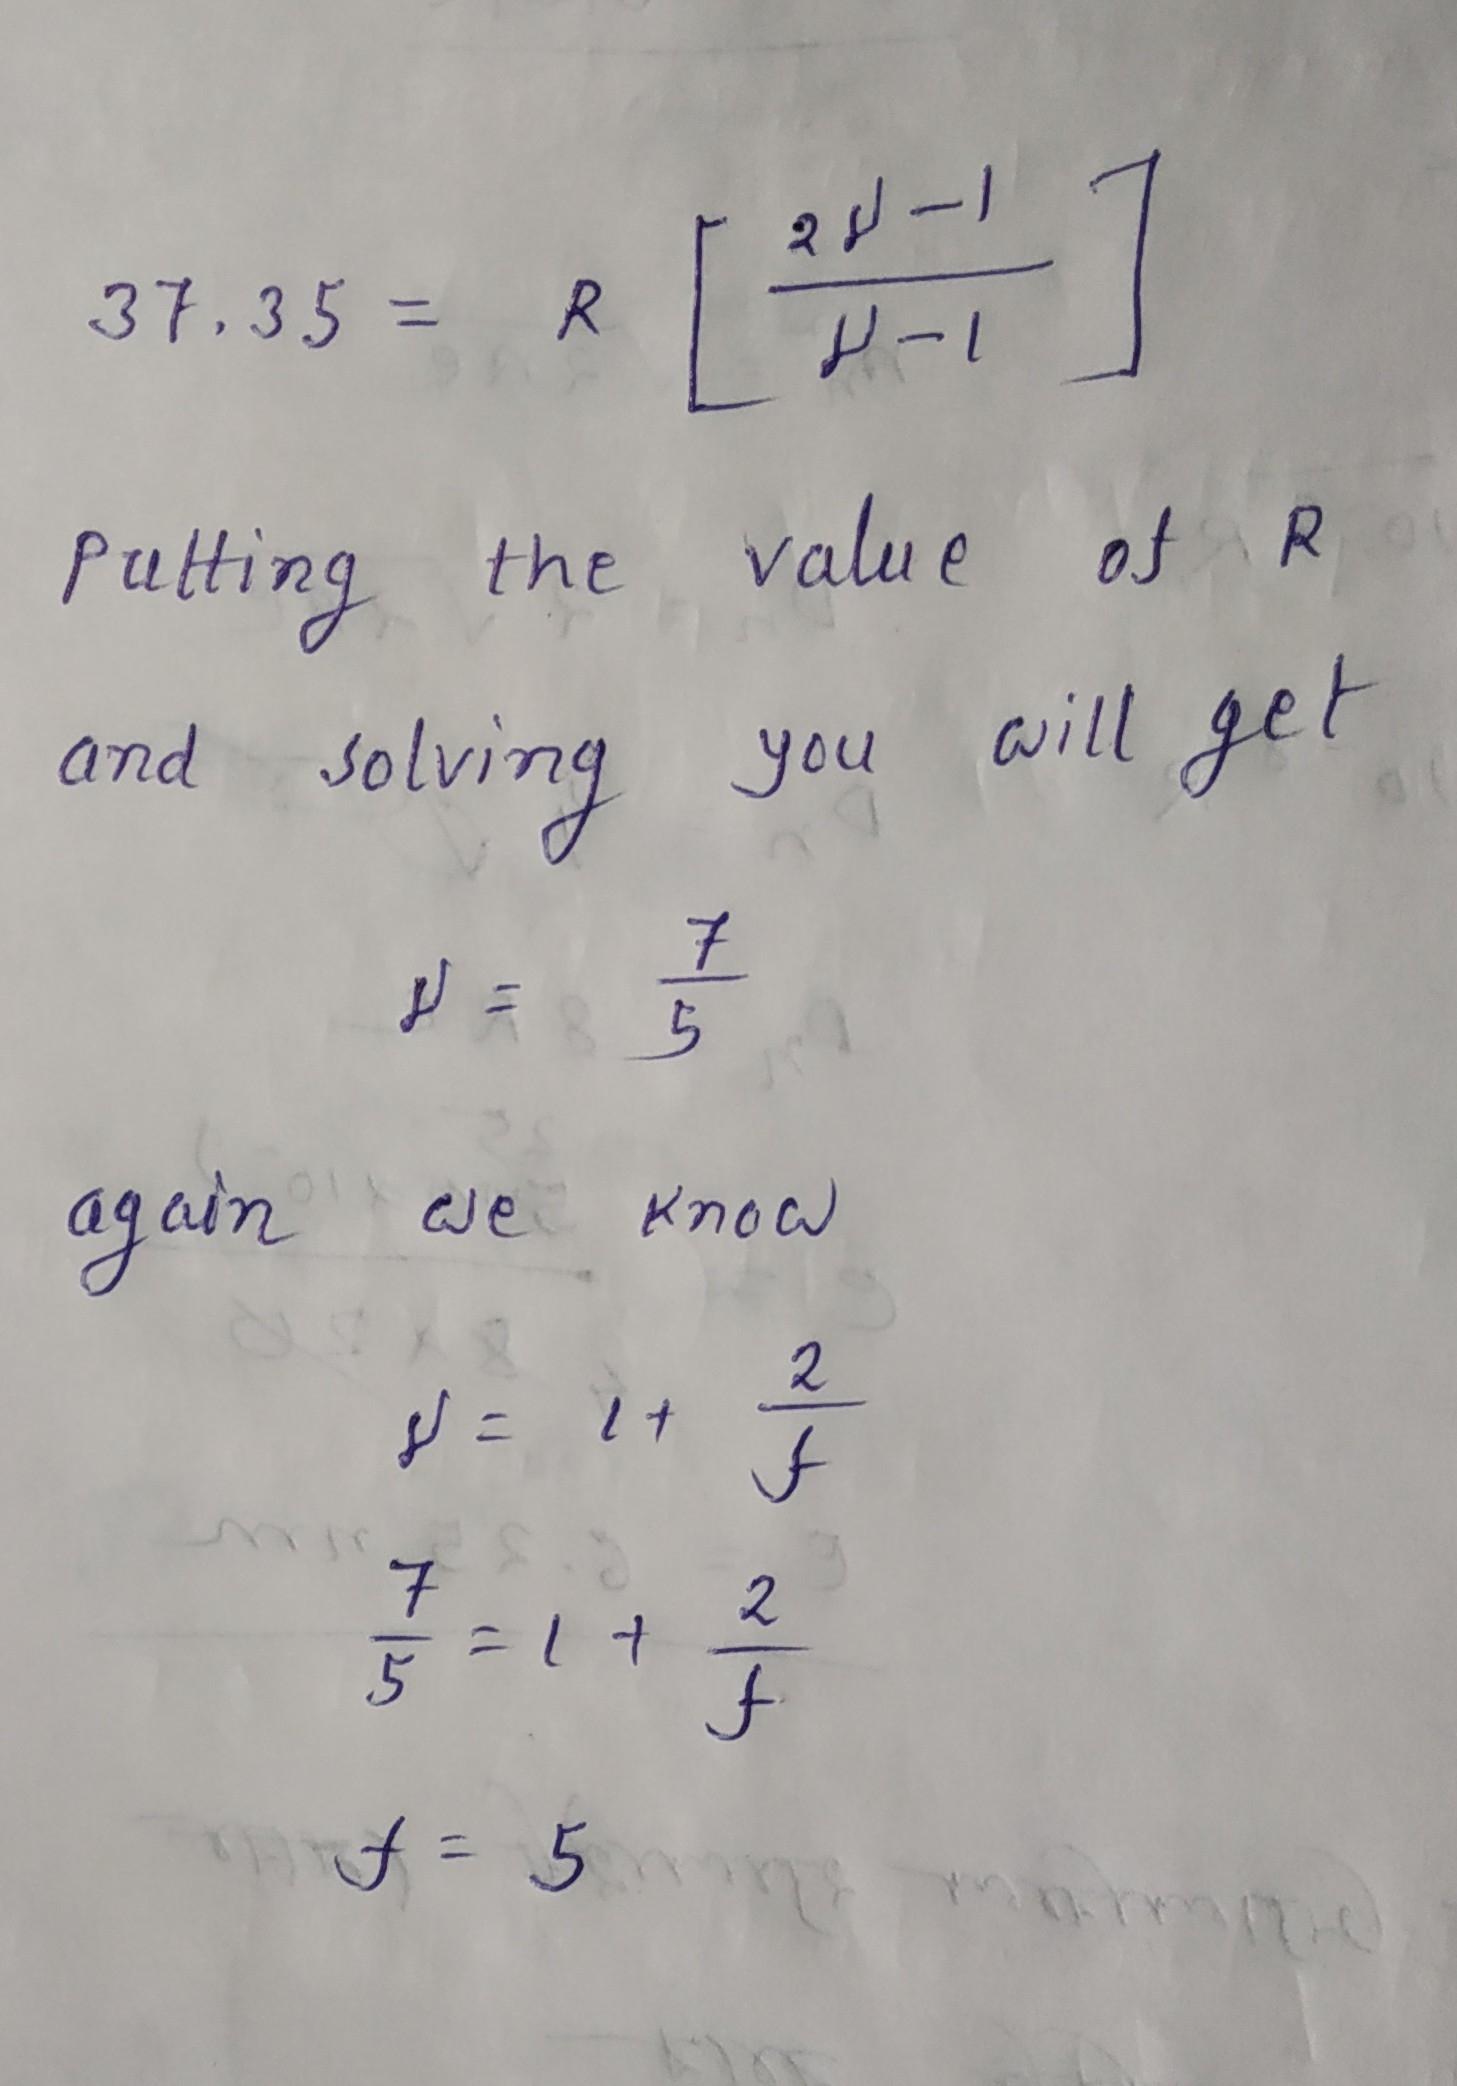 37.35 = R [ (2γ-1)/(γ-1) ]
Putting the value of R
and solving you will get
γ = 7/5
again we know
γ = 1+ 2/f
7/5 = 1 + 2/f
f = 5